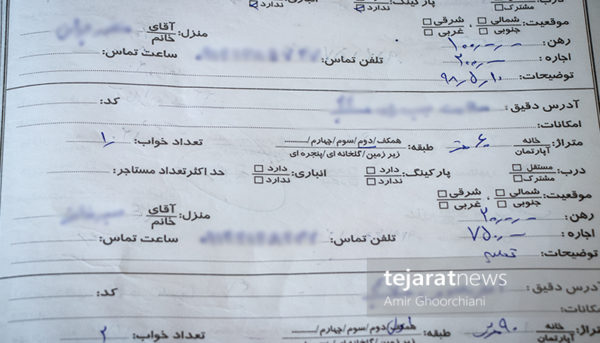 درب: مشترک پارکینگ: ندارد انباری: ندارد
موقعیت: شمالی جنوبی شرقی غربی منزل: آقای خانم
رهن:
اجاره: تلفن تماس: ساعت تماس:
توضیحات: ۹۸٫۵٫۱۰
آدرس دقیق: کد:
امکانات:
متراژ: خانه آپارتمان ۶۰ متر طبقه: همکف/دوم/سوم/چهارم/ زیر زمین/گلخانه ای/پنجره ای تعداد خواب: ۱
درب: مستقل مشترک پارکینگ: دارد ندارد انباری: دارد ندارد حداکثر تعداد مستاجر:
موقعیت: شمالی جنوبی شرقی غربی منزل: آقای خانم
رهن:
اجاره: ۷۵۰ تلفن تماس: ساعت تماس:
توضیحات: تخلیه
آدرس دقیق: کد:
امکانات:
متراژ: خانه آپارتمان ۹۰ متر طبقه: همکف/دوم/سوم/چهارم/ تعداد خواب: ۲
tejaratnews
Amir Ghoorchiani